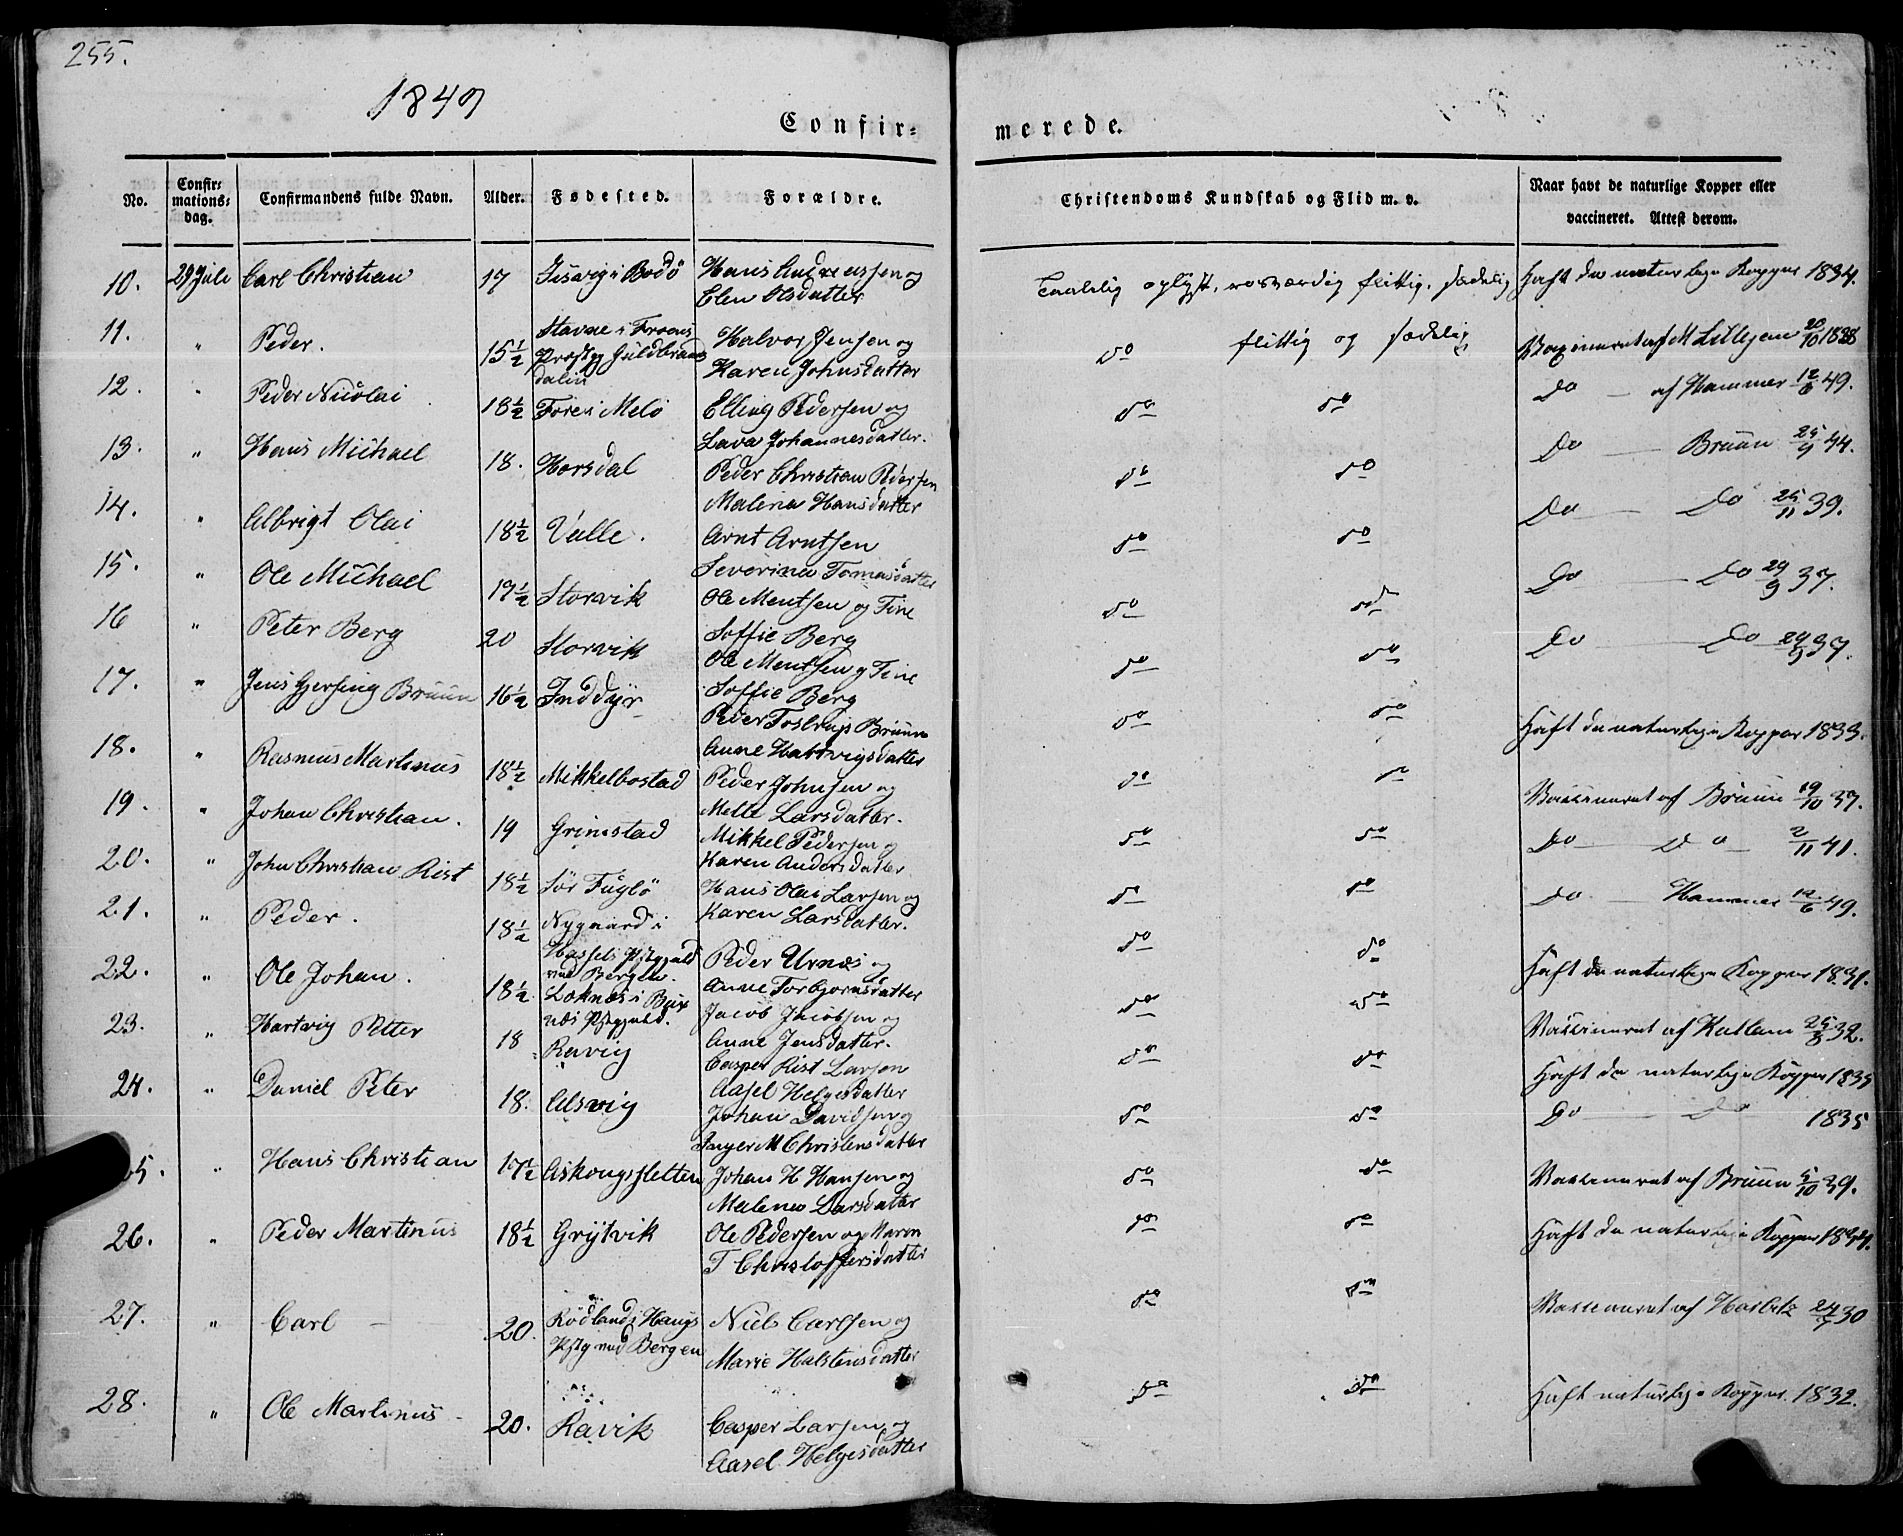 255.
1849
Confir=
merede.
No.
Confir=
mations=
dag.
Confirmandens fulde Navn.
Alder.
Fødested.
Forældre.
Christendoms Kundskab og Flid m. v.
Naar havt de naturlige Kopper eller
vaccineret. Attest derom.
10. 29 Juli Carl Christian 17 i Bodö Hans Andreassen og
Elen Olsdatter
Taalelig oplyst, flittig, sædelig Haft de naturlige Kopper 1834.
11. " Peder. 15½ Stavne i Froens
Præstg Guldbrands
dalen Halvor Jensen og
Karen Johnsdatter
do flittig og sædelig af M Lillejem 20/10 1838
12. " Peder Nicolai 18½ Fore i Melö Elling Pedersen og
Lava Johannesdatter.
do do Do — af Hammer 12/6 49.
13. " Hans Michael 18. Horsdal Peder Christian Pedersen
Malena Hansdatter
do do Do — Bruun 25/9 44.
14. " Albrigt Olai 18½ Valle. Arnt Arntsen
Severina Tomasdatter
do do Do — Do 25/11 39.
15. " Ole Michael 17½ Storvik Ole Mentsen og Tine
Soffie Berg
do do Do — Do 29/9 37.
16 " Peter Berg 20 Storvik Ole Mentsen og Tine
Soffie Berg
do do Do — Do 29/9 37.
17. " Jens Gjersing Bruun 16½ Inddyr Peder Tostrup Bruun
Anne Hartvigsdatter
do do Haft de naturlige Kopper 1833.
18. " Rasmus Martinus 18½ Mikkelbostad Peder Johnsen og
Melle Larsdatter.
do do Vassineret af Bruun 19/10 37.
19. " Johan Christian. 19 Grimstad Mikkel Pedersen og
Karen Andersdatter
do do Do — Do — 2/11 41.
20. " John Christian Rist 18½ Sör Fuglö Hans Olai Larsen og
Karen Larsdatter.
do do Do — Hammer 12/6 49.
21. " Peder. 18½ Nygaard i
Hassels Pstgjeld
ved Bergen. Peder Urnæs og
Anne Torbjornsdatter
do do Haft de naturlige Kopper 1831.
22. " Ole Johan. 18½ Loknæs i
Pstgjeld. Jacob Jacobsen og
Anne Jensdatter.
do do Vassineret af 25/8 32.
23. " Hartvig Petter 18 Ravig Casper Rist Larsen
Aasel Helgesdatter
do do Haft de naturlige Kopper 1835
24. " Daniel Peter 18. Alsvig Johan Davidsen og
Inger M Christensdatter
do do Do — Do 1835
25. " Hans Christian 17½ Askougsletten Johan H Hansen og
Malena Larsdatter
do do Vassineret af Bruun 5/10 39.
26. " Peder Martinus 18½ Grytvik Ole Pedersen og Maren
T Christoffersdatter
do do Haft de naturlige Kopper 1834.
27. " Carl — 20. Rödland i Haugs
Pstg ved Bergen Niels Carlsen og
Marie Halstensdatter
do do Vassineret af 24/7 30
28. " Ole Martinus 20. Ravik Casper Larsen og
Aasel Helgesdatter
do do Haft naturlige Kopper. 1832.